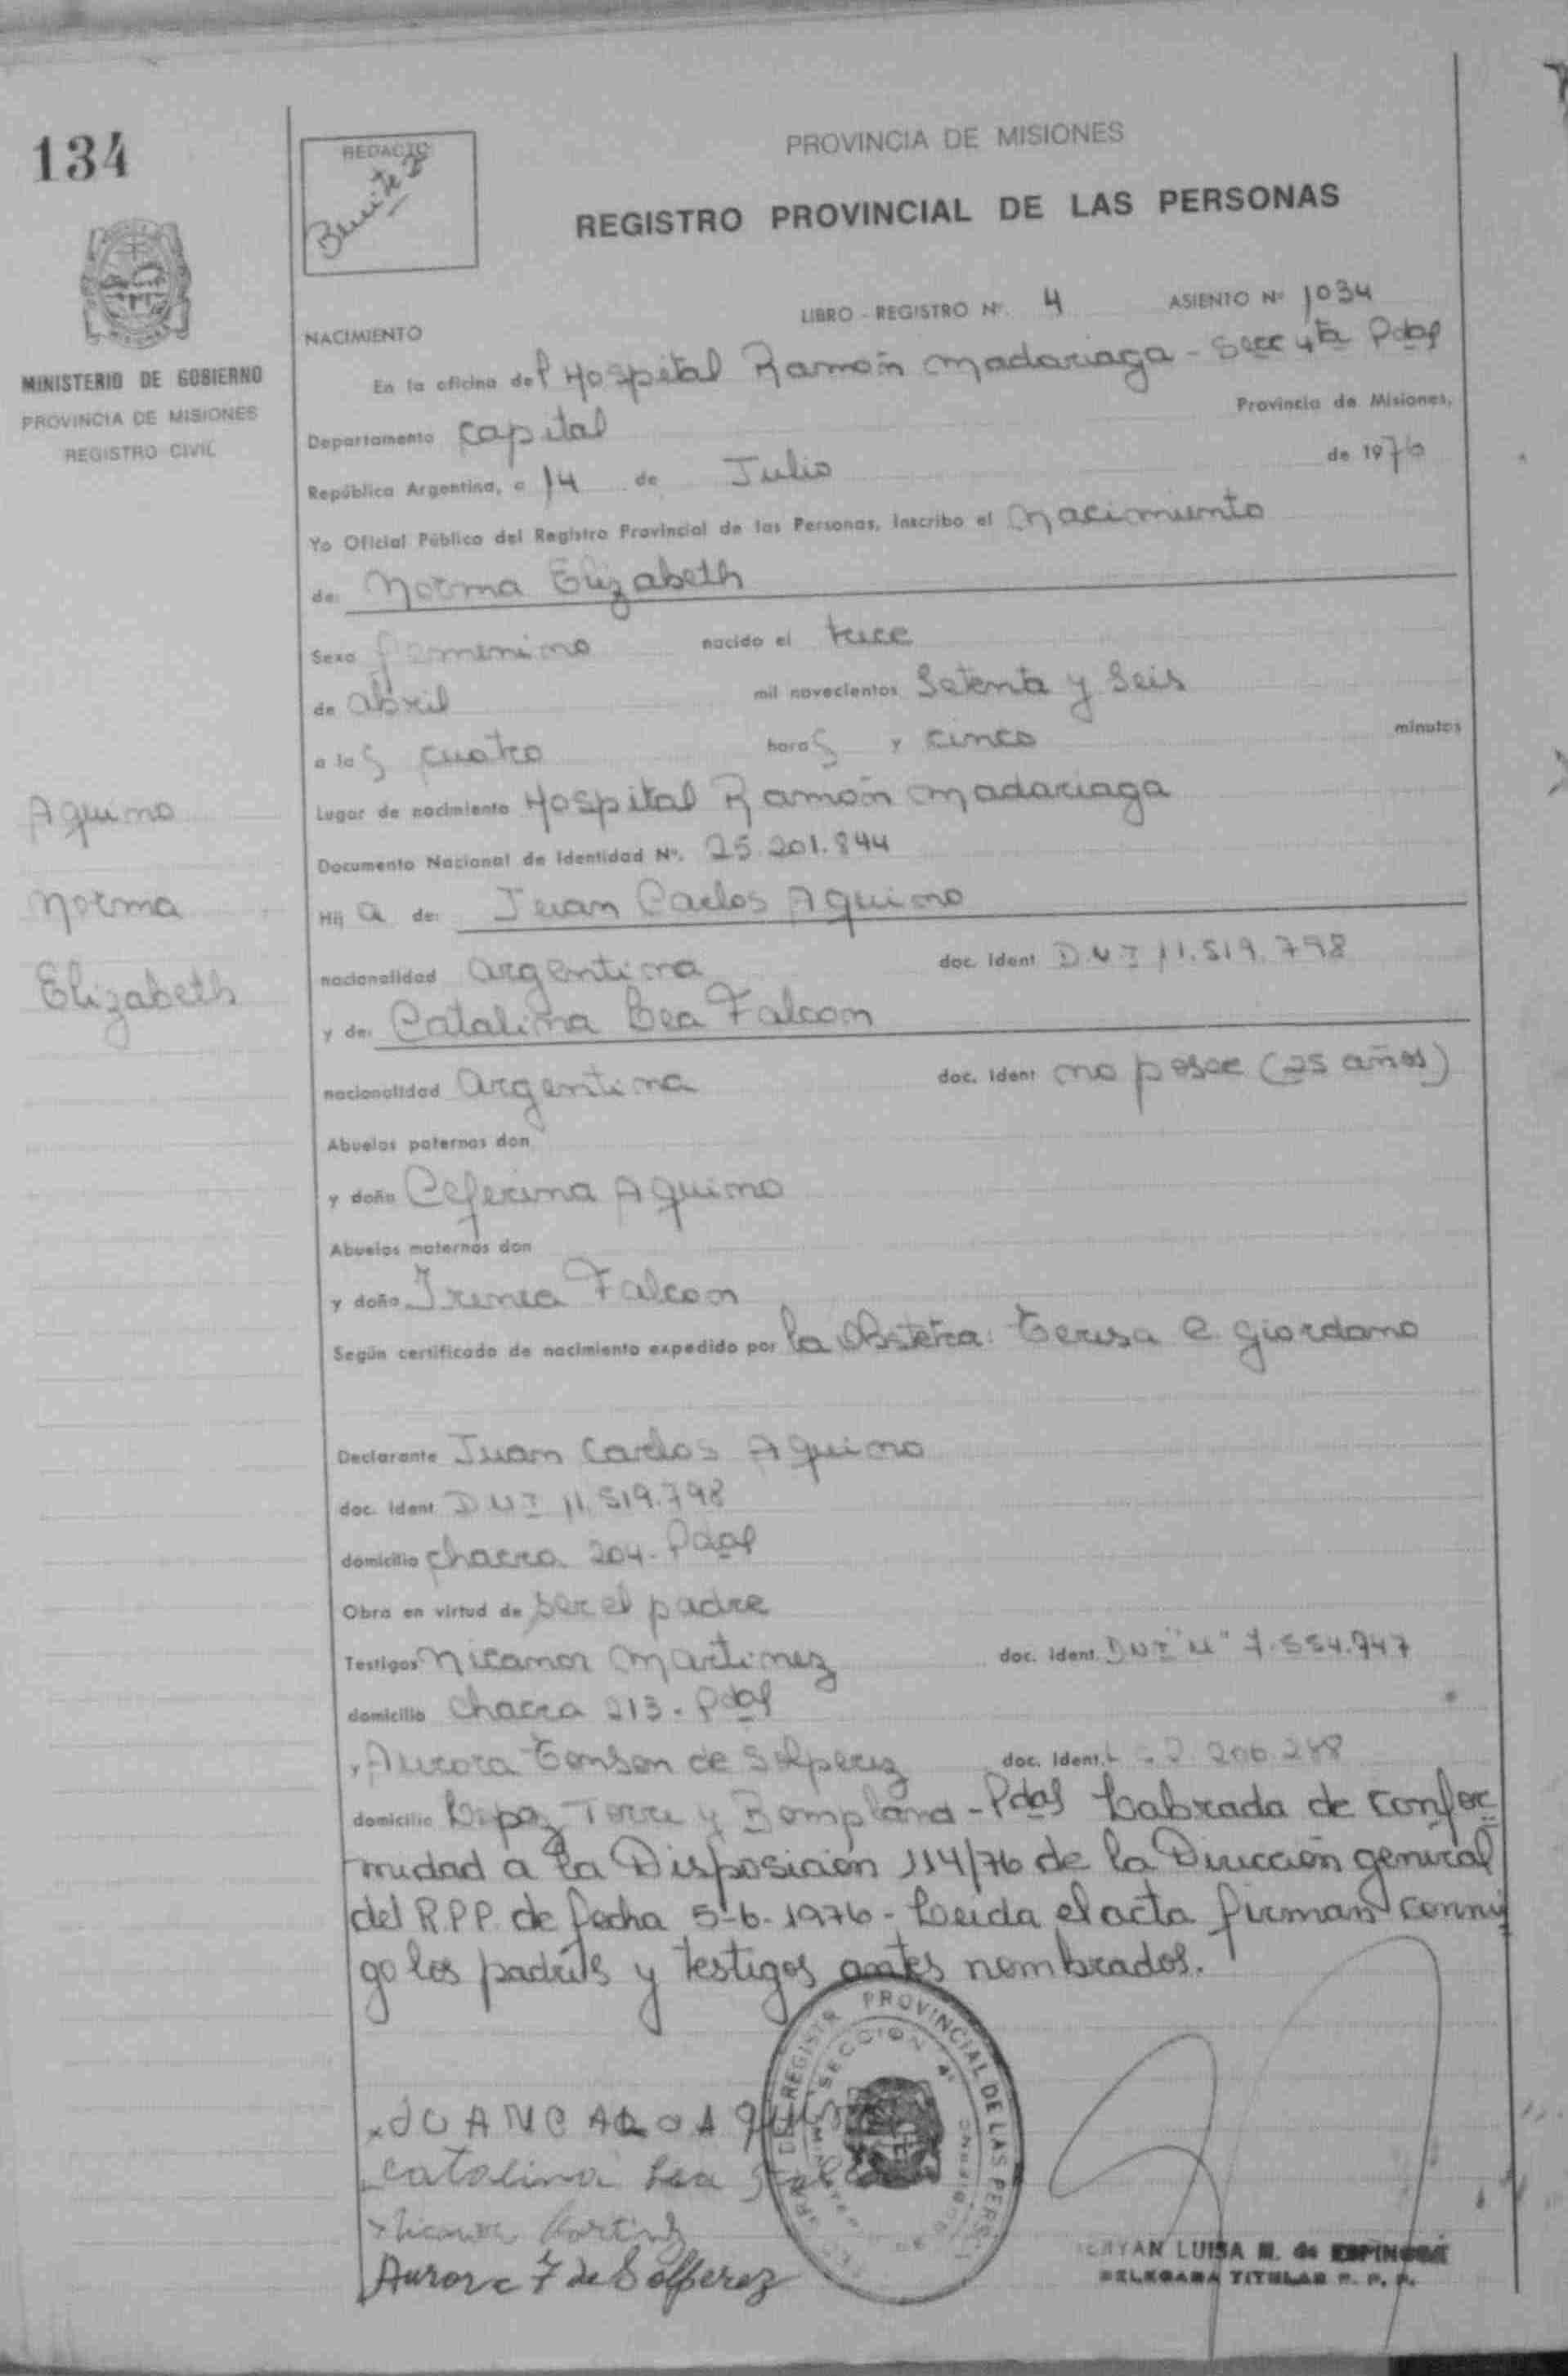 134
REDACTO
Benitez
PROVINCIA DE MISIONES
REGISTRO PROVINCIAL DE LAS PERSONAS
MINISTERIO DE GOBIERNO
PROVINCIA DE MISIONES
REGISTRO CIVIL
LIBRO - REGISTRO Nº. 4 ASIENTO Nº 1034
NACIMIENTO
En la oficina del Hospital Ramón Madariaga - Secc 4ta Pdas
Departamento Capital Provincia de Misiones,
República Argentina, a 14 de Julio de 1976
Yo Oficial Público del Registro Provincial de las Personas, inscribo el Nacimiento
de: Norma Elizabeth
Sexo femenino nacido el trece
de abril mil novecientos Setenta y Seis
a las cuatro horas y cinco minutos
Lugar de nacimiento Hospital Ramón Madariaga
Documento Nacional de Identidad Nº. 25.201.844
Hija de: Juan Carlos Aquino
nacionalidad argentina doc. Ident DNI 11.519.798
y de: Catalina Lea Falcon
nacionalidad argentina doc. Ident no posee (25 años)
Abuelos paternos don
y doña Ceferina Aquino
Abuelos maternos don
y doña Irenea Falcon
Según certificado de nacimiento expedido por la Obstetra: Teresa C. Giordano
Declarante Juan Carlos Aquino
doc. Ident DNI 11.519.798
domicilio chacra 204 - Pdas
Obra en virtud de ser el padre
Testigos Nicanor Martinez doc. Ident. DNI "M" 7.554.947
domicilio Chacra 213 - Pdas
y Aurora de doc. Ident. 2.206.288
domicilio Lopez Torre y Bompland - Pdas Labrada de confor
midad a la Disposición 114/76 de la Dirección general
del R.P.P. de fecha 5-6-1976 - Leida el acta firman conmi
go los padres y testigos antes nombrados.
Aquino
Norma
Elizabeth
JUAN CARLOS Aquino
Catalina Lea
Nicanor Martinez
Aurora T de Solperez
PROVINCIAL DE LAS PERS
SECCION 4ª
LUISA M. de ESPINOSA
DELEGADA TITULAR R. P. P.